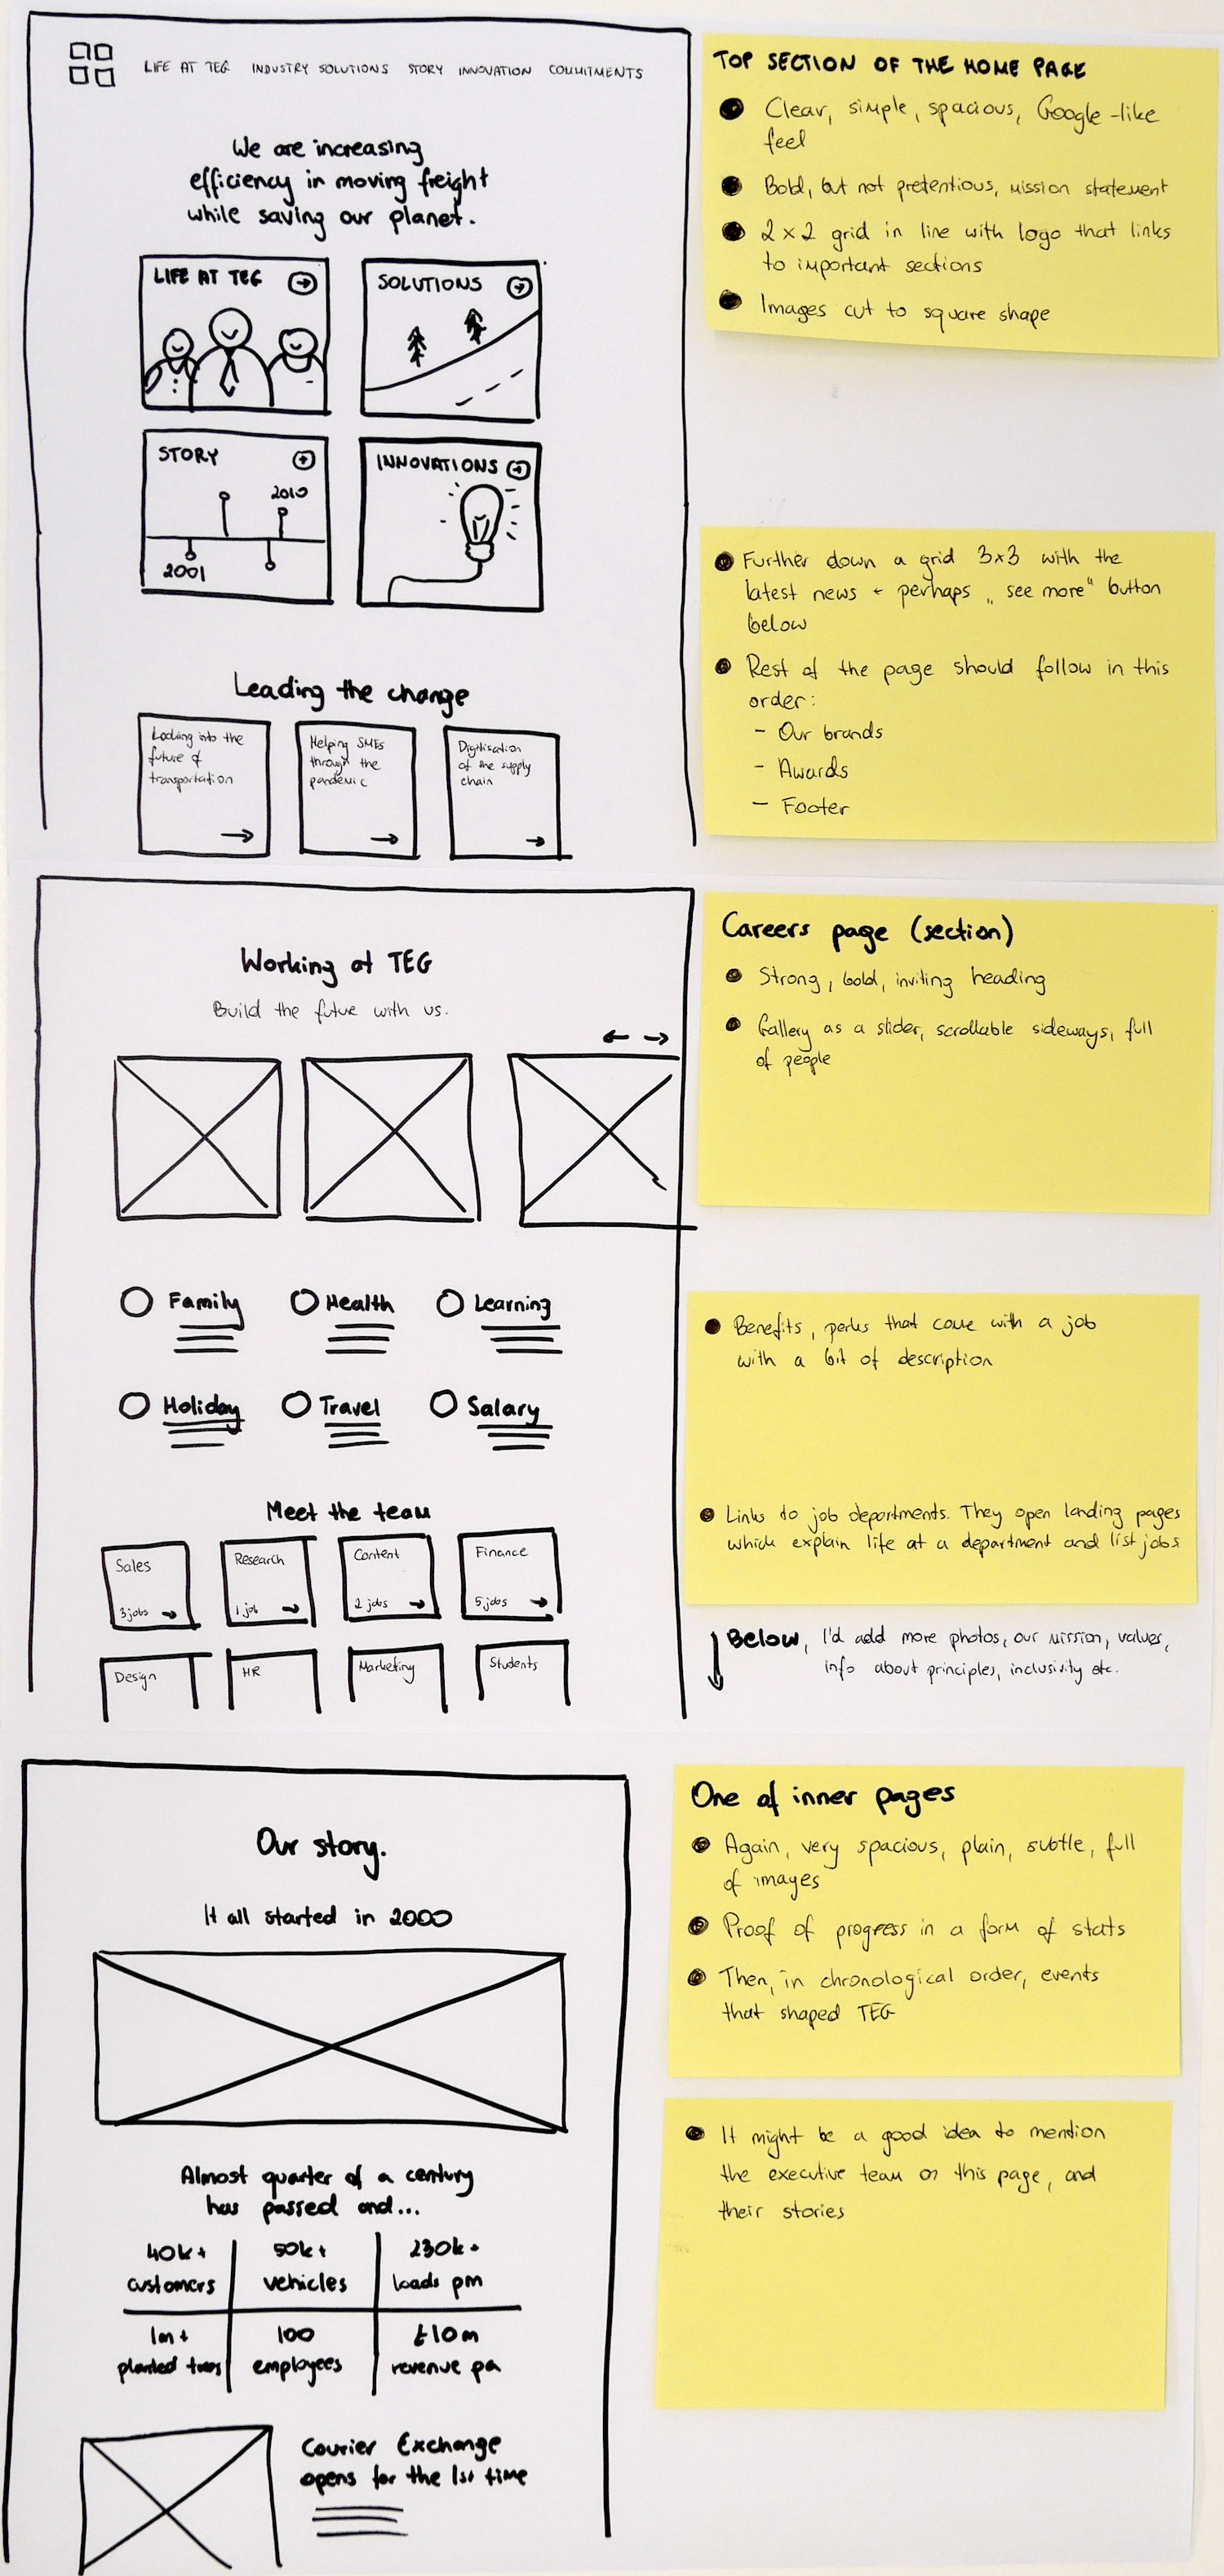 LIFE AT TEG INDUSTRY SOLUTIONS STORY INNOVATION COMMITMENTS
We are increasing
efficiency in moving freight
while saving our planet.
LIFE AT TEG
SOLUTIONS
STORY
2010
2001
INNOVATIONS
Leading the change
Looking into the
future of
transportation
Helping SMEs
through the
pandemic
Digitisation
of the supply
chain
TOP SECTION OF THE HOME PAGE
Clear, simple, spacious, Google-like
feel
Bold, but not pretentious, mission statement
2x2 grid in line with logo that links
to important sections
Images cut to square shape
Further down a grid 3x3 with the
latest news + perhaps „see more" button
below
Rest of the page should follow in this
order:
- Our brands
- Awards
- Footer
Working at TEG
Build the future with us.
Family
Health
Learning
Holiday
Travel
Salary
Meet the team
Sales
3 jobs
Research
1 job
Content
2 jobs
Finance
5 jobs
Design
HR
Marketing
Students
Careers page (section)
Strong, bold, inviting heading
Gallery as a slider, scrollable sideways, full
of people
Benefits, perks that come with a job
with a bit of description
Links to job departments. They open landing pages
which explain life at a department and list jobs
Below, I'd add more photos, our mission, values,
info about principles, inclusivity etc.
Our story.
It all started in 2000
Almost quarter of a century
has passed and...
40k+
customers
50k+
vehicles
230k+
loads pm
1m+
planted trees
100
employees
£10m
revenue pa
Courier Exchange
opens for the 1st time
One of inner pages
Again, very spacious, plain, subtle, full
of images
Proof of progress in a form of stats
Then, in chronological order, events
that shaped TEG
It might be a good idea to mention
the executive team on this page, and
their stories